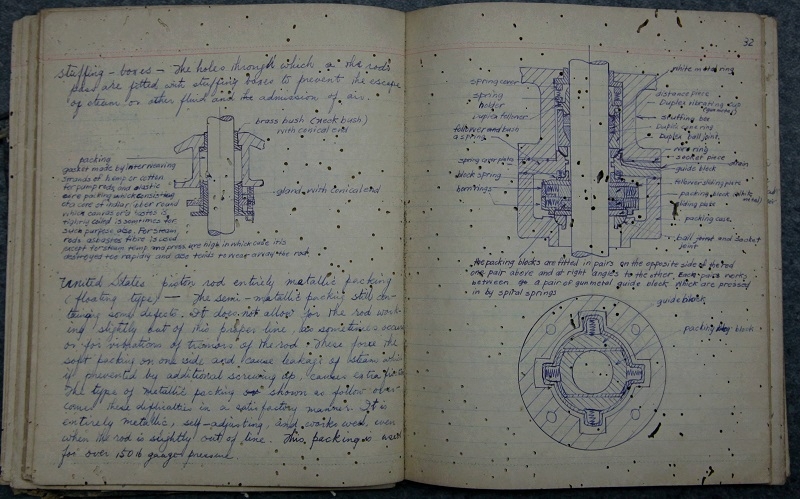 stuffing - boxes - The holes through which a the rods
pass are fitted with stuffing boxes to prevent the escape
of steam or other fluid and the admission of air.
brass bush (neck bush)
with conical end
packing
gasket made by interweaving
strands of hemp or cotton
for pump rods and elastic
core packing which consists
of a core of india rubber round
which canvas
tightly coiled is sometimes for
such purpose also. For steam
rods asbestos fibre is used
except for steam temp and press are high in which case it is
destroyed too rapidly and also tends to wear away the rod.
gland with conical end
United States piston rod entirely metallic packing
(floating type) - The semi-metallic packing still con-
some defects. It does not allow for the rod work-
ing slightly out of this proper line, as sometimes occurs
or for vibrations of tremors of the rod. These force the
soft packing on one side and cause leakage of steam which
if prevented by additional screwing up, causes extra friction
The type of metallic packing shown as follow over-
comes these difficulties in a satisfactory manner. It is
entirely metallic, self-adjusting, and works well even
when the rod is slightly out of line. This packing is used
for over 150 lb gauge pressure
32
spring cover
spring
holder
Duplex follower
follower and bush
a spring
spring cover plate
block spring
horn rings
white metal ring
distance piece
Duplex vibrating cup
(gunmetal)
stuffing box
Duplex cone ring
Duplex ball joint
neck ring
socket piece
drain
guide block
follower sliding plate
packing block (white
metal)
sliding plate
packing case
ball joint and socket
joint
The packing blocks are fitted in pairs on the opposite side of the rod
one pair above and at right angles to the other. Each pair
between go a pair of gunmetal guide block which are pressed
in by spiral springs
guide block
packing block